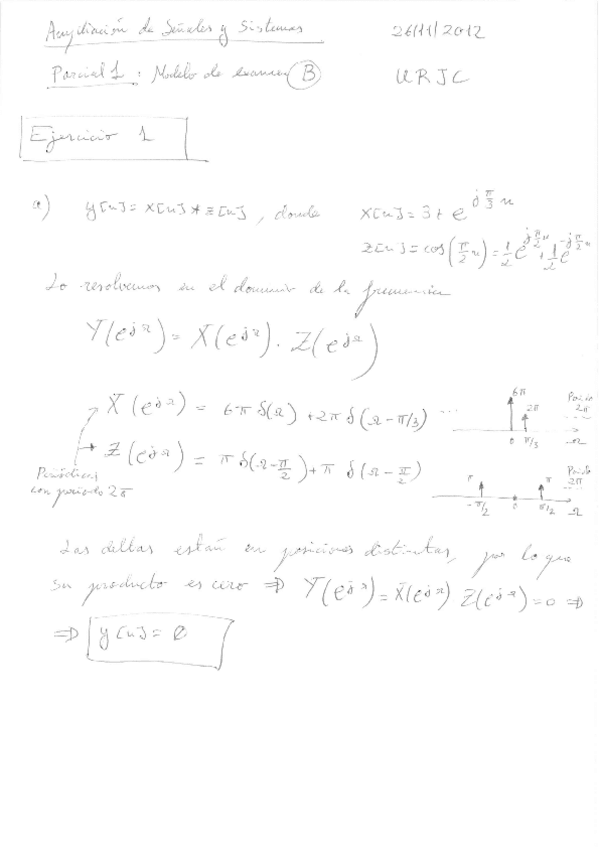 Ampliación de Señales y Sistemas 26/11/2012
Parcial 1: Modelo de examen B URJC
Ejercicio 1
a) y[n] = x[n] * z[n], donde x[n] = 3 + e^{j π/3 n}
z[n] = cos(π/2 n) = 1/2 e^{j π/2 n} + 1/2 e^{-j π/2 n}
Lo resolvemos en el dominio de la frecuencia
Y(e^{jΩ}) = X(e^{jΩ}) · Z(e^{jΩ})
X(e^{jΩ}) = 6π δ(Ω) + 2π δ(Ω - π/3) ...
6π 2π 0 π/3 Ω
Z(e^{jΩ}) = π δ(Ω - π/2) + π δ(Ω - π/2)
π π -π/2 0 π/2 Ω
Periódicas
con periodo 2π
Las deltas están en posiciones distintas, por lo que
su producto es cero ⇒ Y(e^{jΩ}) = X(e^{jΩ}) Z(e^{jΩ}) = 0 ⇒
⇒ y[n] = 0